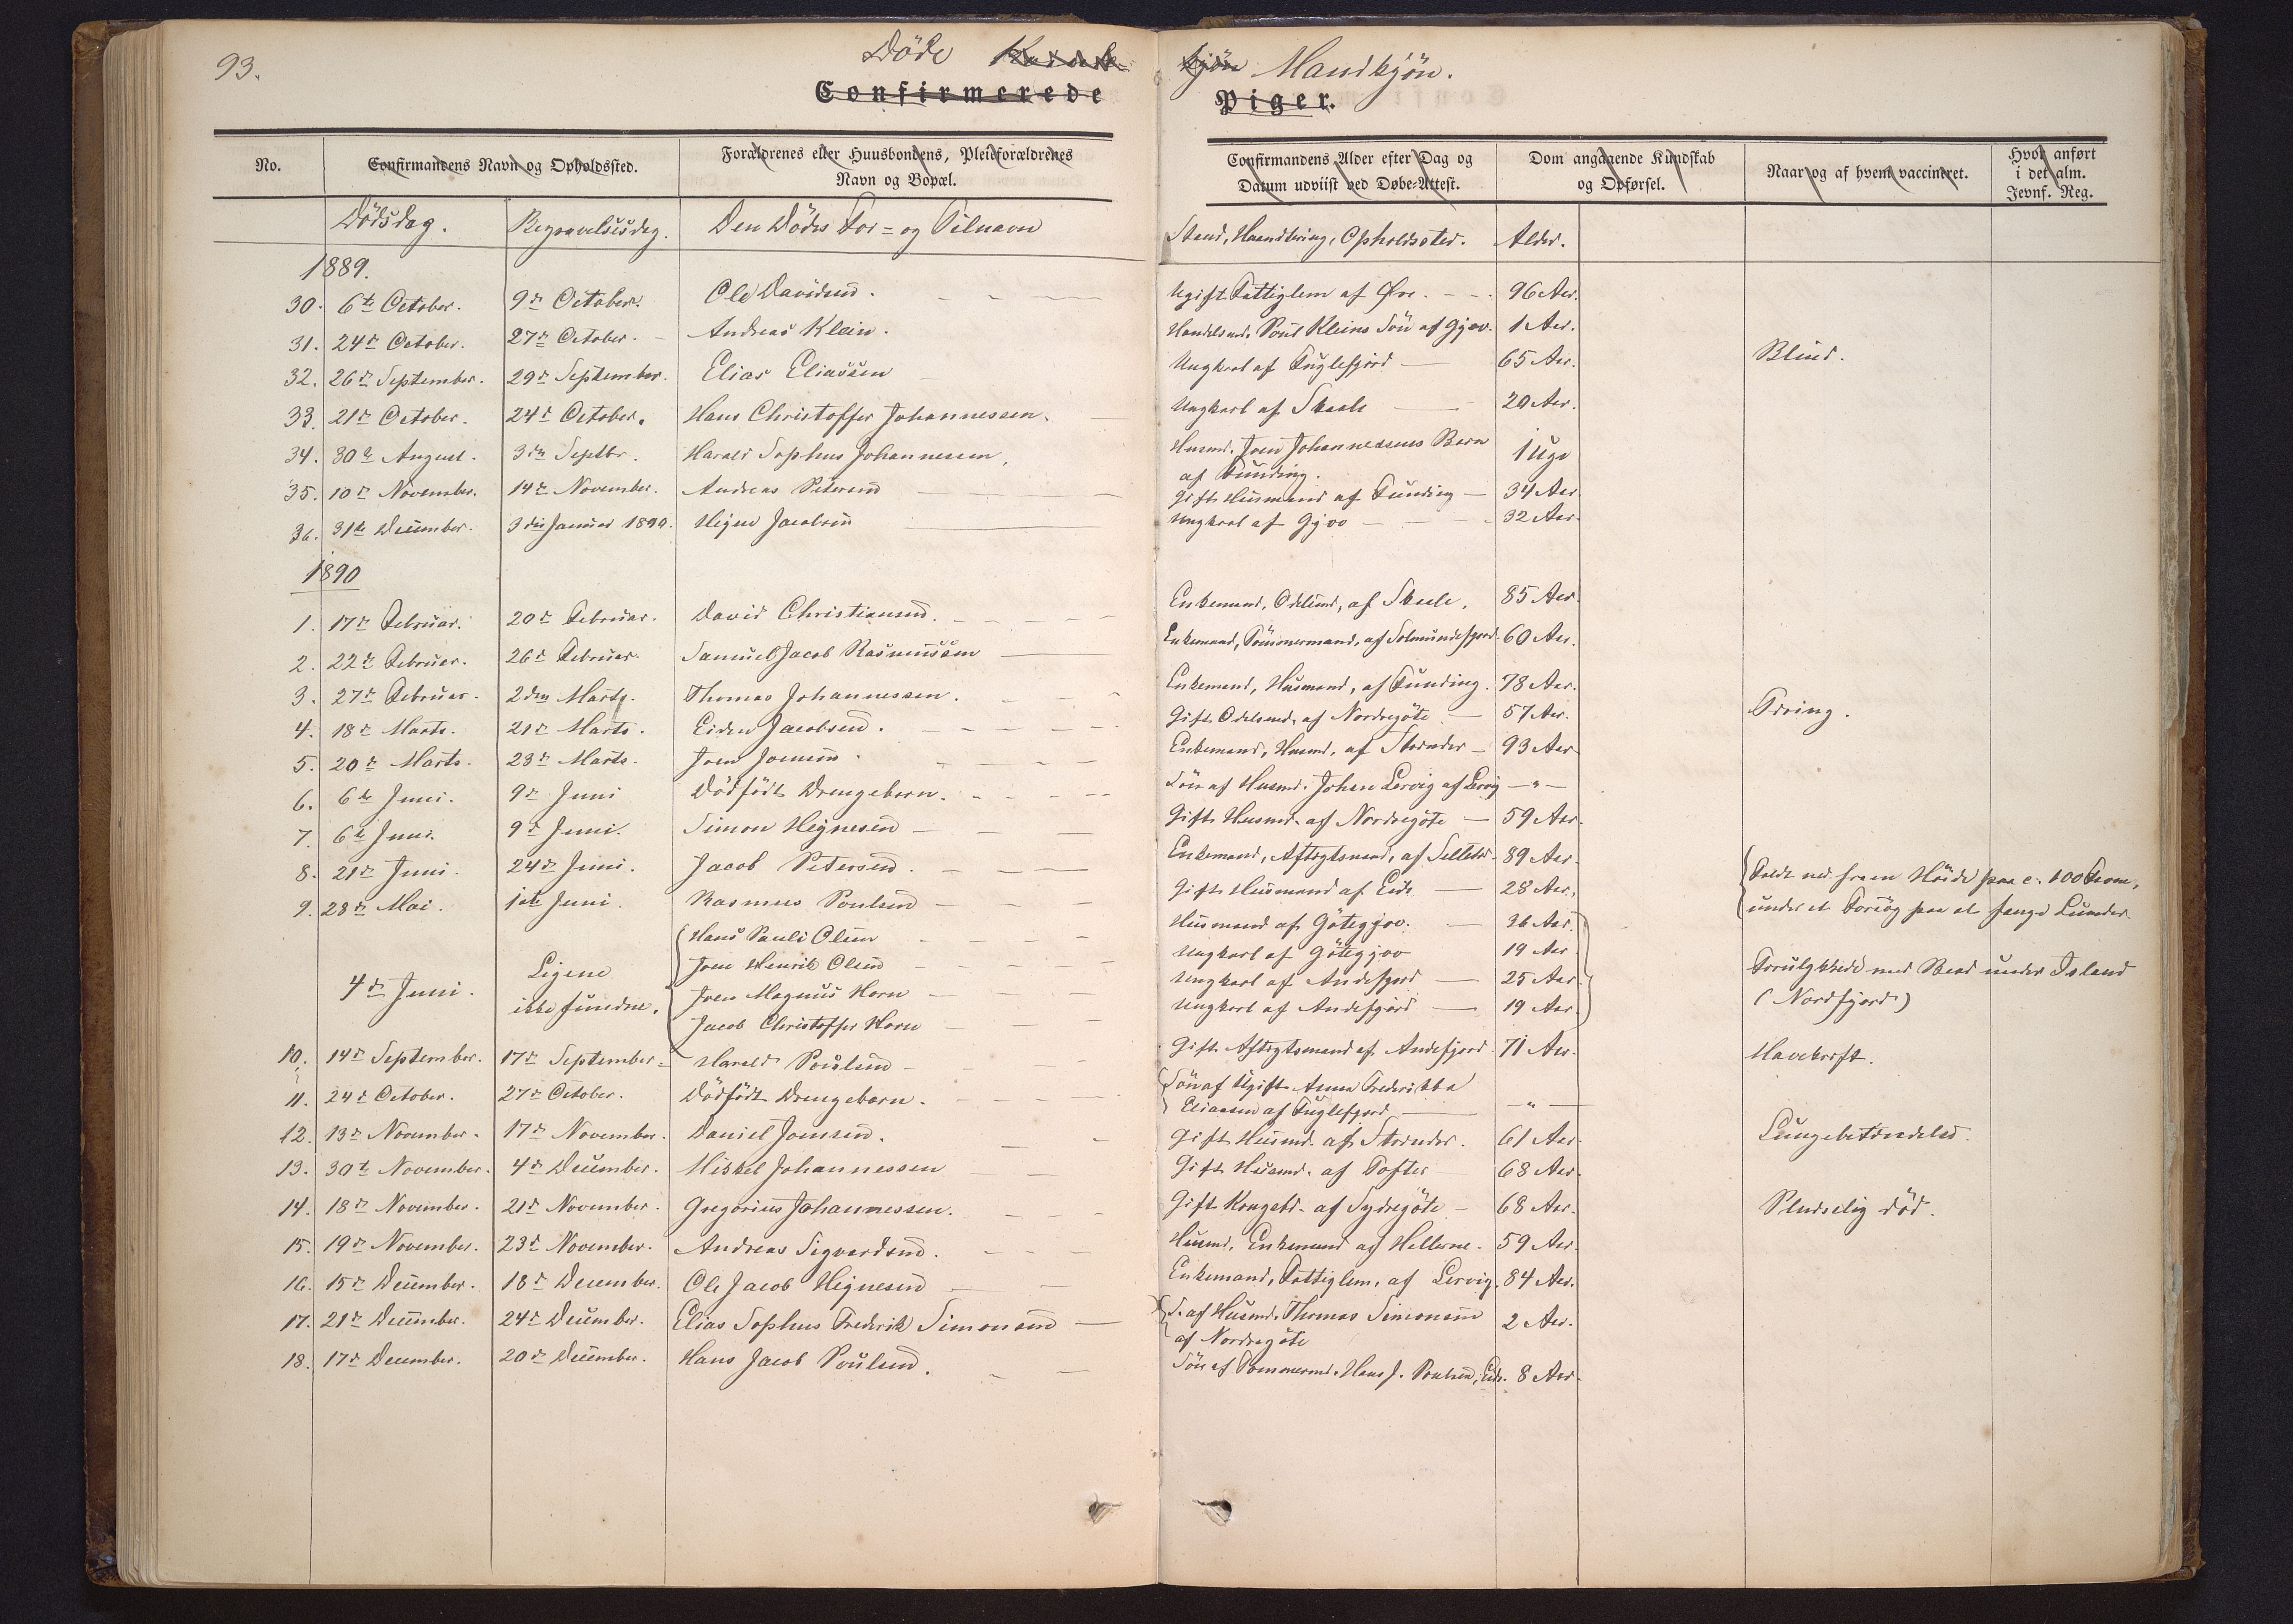 93.
Döde Kvindekjön Mandkjön.
Confirmerede Piger.
No. Confirmandens Navn og Opholdssted. Forældrenes eller Huusbondens, Pleieforældrenes Navn og Bopæl. Confirmandens Alder efter Dag og Datum udviist ved Døbe-Attest. Dom angaaende Kundskab og Opførsel. Naar og af hvem vaccineret. Hvor anført i det alm. Jevnf. Reg.
Dödsdag. Begravelsesdag. Den Dödes For- og Tilnavn Stand, Haandtering, Opholdssted. Alder.
1889.
30. 6te October. 9de October. Ole Davidsen. Ugift Fattiglem af Øre. 96 Aar.
31. 24de October. 27de October. Andreas Klein. Handelsmd. Poul Kleins Sön af Gjov. 1 Aar.
32. 26de September. 29de September. Elias Eliassen Ungkarl af Fuglefjord 65 Aar. Blind.
33. 21de October. 24de October. Hans Christoffer Johannessen. Ungkarl af Skaale 20 Aar.
34. 30te August. 3die Septbr. Harald Sophus Johannessen, Husmd. Joen Johannessens Barn 1 Uge
af Funding.
35. 10de November. 14de November. Andreas Petersen Gift Husmand af Funding 34 Aar
36. 31te December. 3die Januar 1890. Hejne Jacobsen Ungkarl af Gjov 32 Aar.
1890
1. 17de Februar. 20de Februar. David Christiansen. Enkemand, Odelsmd, af Skaale. 85 Aar.
2. 22de Februar. 26de Februar. Samuel Jacob Rasmussen Enkemand, Tömmermand, af Solmundefjord. 60 Aar.
3. 27de Februar. 2den Marts. Thomas Johannessen. Enkemand, Husmand, af Funding. 78 Aar.
4. 18de Marts. 21de Marts. Eiden Jacobsen. Gift Odelsmd. af Nordregöte 57 Aar. Tæring.
5. 20de Marts. 23de Marts. Joen Joensen. Enkemand, Husmd, af Strender 93 Aar
6. 6te Juni. 9de Juni Dödfödt Drengebarn. Sön af Husmd. Johan Lervig af Lervig — " —
7. 6te Juni. 9de Juni. Simon Hejnesen Gift Husmd. af Nordregöte 59 Aar.
8. 21de Juni. 24de Juni. Jacob Petersen. Enkemand, Aftægtsmand, af Selletræ. 89 Aar.
9. 28de Mai. 1ste Juni. Rasmus Poulsen Gift Husmand af Eide 28 Aar. Faldt ned fra en Höide paa c. 100 Favne,
under et Forsög paa at fange Lunder.
4de Juni. Ligene ikke fundne. Hans Pauli Olsen Husmand af Götegjov. 36 Aar.
Joen Henrik Olsen Ungkarl af Götegjov 19 Aar
Joen Magnus Horn Ungkarl af Andefjord 25 Aar Forulykkede med Baad under Island
Jacob Christoffer Horn Ungkarl af Andefjord 19 Aar (Nordfjord)
10. 14de September. 17de September. Harald Poulsen Gift Aftægtsmand af Andefjord. 71 Aar. Mavekræft.
11. 24de October. 27de October. Dödfödt Drengebarn. Sön af Ugift Anna Frederikka
Eliassen af Fuglefjord — " —
12. 13de November. 17de November. Daniel Joensen. Gift Husmd. af Strender. 61 Aar. Lungebetændelse.
13. 30te November. 4de December. Mikkel Johannessen Gift Husmd. af Tofter 68 Aar.
14. 18de November. 21de November. Gregorius Johannessen. Gift Kongsbd. af Sydregöte 68 Aar. Pludselig död.
15. 19de November. 23de November. Andreas Sigvardsen. Husmd. Enkemand af Hellerne. 59 Aar.
16. 15de December. 18de December. Ole Jacob Hejnesen Enkemand, Fattiglem, af Lervig. 84 Aar.
17. 21de December. 24de December. Elias Sophus Frederik Simonsen S. af Husmd. Thomas Simonsen 2 Aar.
af Nordregöte
18. 17de December. 20de December. Hans Jacob Poulsen. Sön af Tömmermd. Hans J. Poulsen, Eide. 8 Aar